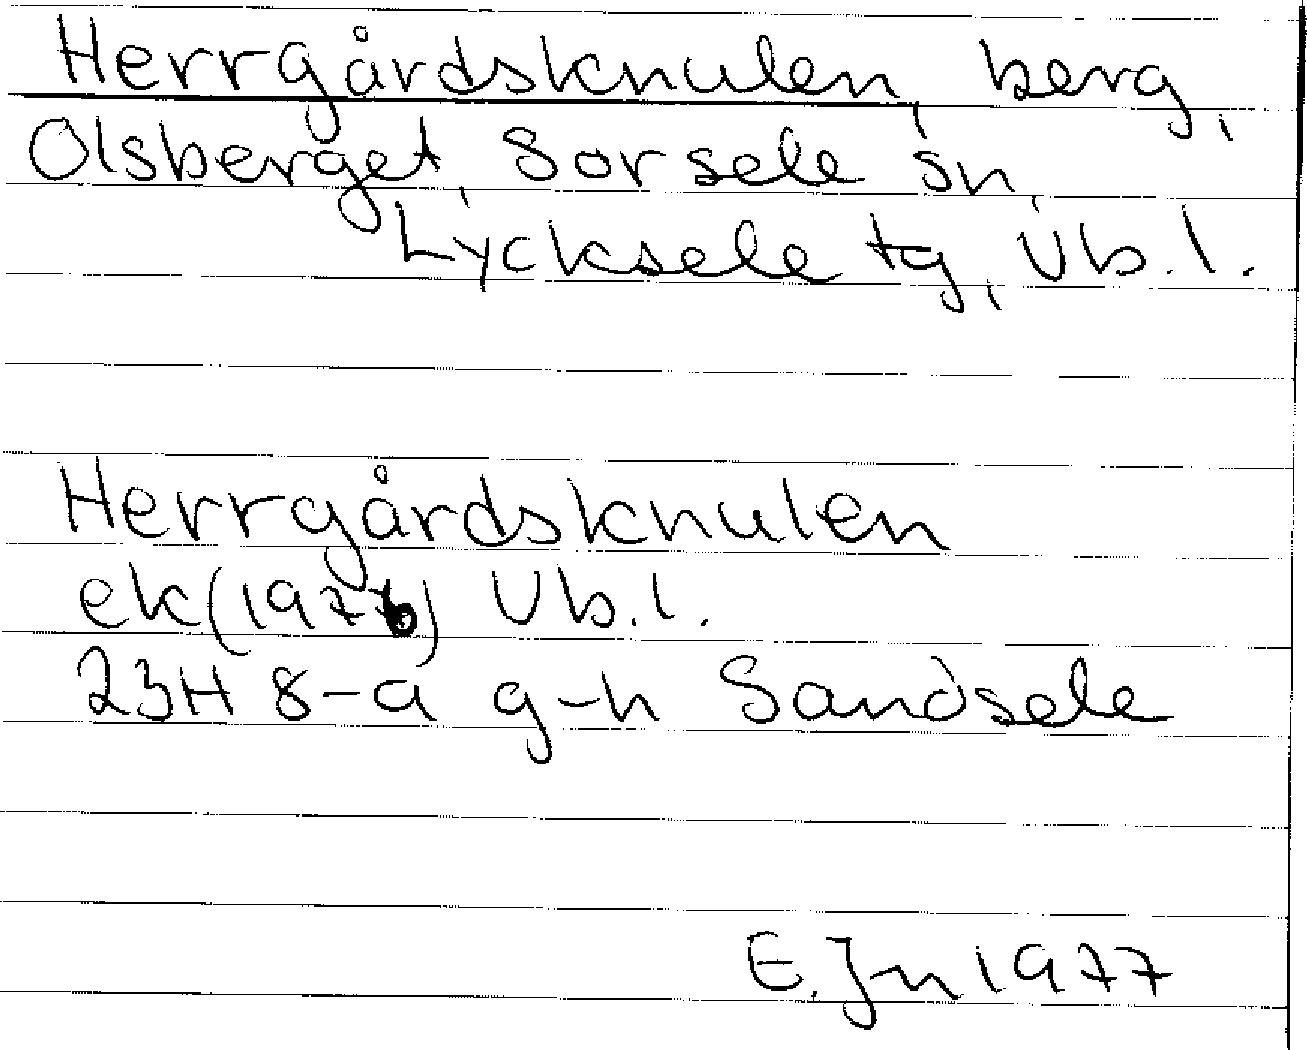 Herrgårdsknulen, berg,
Olsberget, Sorsele sn,
Lycksele tg, Vb.l.
Herrgårdsknulen
ek(1976) Vb.l.
23H 8-9 g-h Sandsele
E.Jn 1977